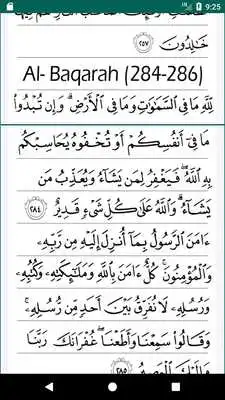 9:25
خَٰلِدُونَ ﴿٢٥٧﴾
Al- Baqarah (284-286)
لِّلَّهِ مَا فِي ٱلسَّمَٰوَٰتِ وَمَا فِي ٱلْأَرْضِ ۗ وَإِن تُبْدُوا۟
مَا فِيٓ أَنفُسِكُمْ أَوْ تُخْفُوهُ يُحَاسِبْكُم
بِهِ ٱللَّهُ ۖ فَيَغْفِرُ لِمَن يَشَآءُ وَيُعَذِّبُ مَن
يَشَآءُ ۗ وَٱللَّهُ عَلَىٰ كُلِّ شَىْءٍ قَدِيرٌ ﴿٢٨٤﴾
ءَامَنَ ٱلرَّسُولُ بِمَآ أُنزِلَ إِلَيْهِ مِن رَّبِّهِۦ
وَٱلْمُؤْمِنُونَ ۚ كُلٌّ ءَامَنَ بِٱللَّهِ وَمَلَٰٓئِكَتِهِۦ وَكُتُبِهِۦ
وَرُسُلِهِۦ لَا نُفَرِّقُ بَيْنَ أَحَدٍ مِّن رُّسُلِهِۦ ۚ
وَقَالُوا۟ سَمِعْنَا وَأَطَعْنَا ۖ غُفْرَانَكَ رَبَّنَا
وَإِلَيْكَ ٱلْمَصِيرُ ﴿٢٨٥﴾